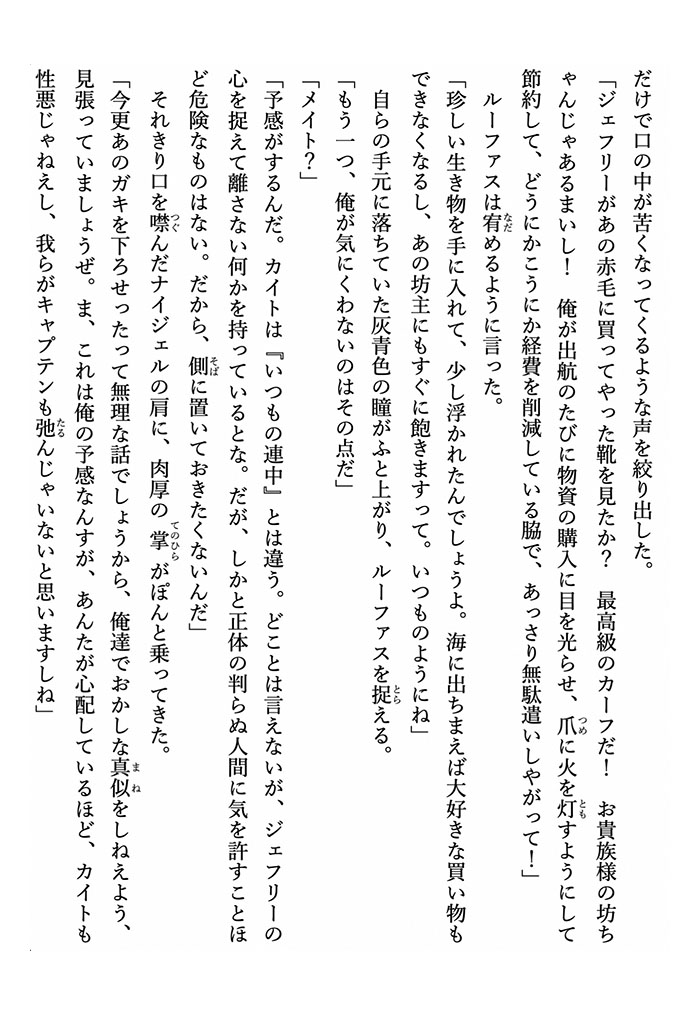 だけで口の中が苦くなってくるような声を絞り出した。
「ジェフリーがあの赤毛に買ってやった靴を見たか？　最高級のカーフだ！　お貴族様の坊ち
ゃんじゃあるまいし！　俺が出航のたびに物資の購入に目を光らせ、爪に火を灯すようにして
節約して、どうにかこうにか経費を削減している脇で、あっさり無駄遣いしやがって！」
　ルーファスは宥めるように言った。
「珍しい生き物を手に入れて、少し浮かれたんでしょうよ。海に出ちまえば大好きな買い物も
できなくなるし、あの坊主にもすぐに飽きますって。いつものようにね」
　自らの手元に落ちていた灰青色の瞳がふと上がり、ルーファスを捉える。
「もう一つ、俺が気にくわないのはその点だ」
「メイト？」
「予感がするんだ。カイトは『いつもの連中』とは違う。どことは言えないが、ジェフリーの
心を捉えて離さない何かを持っているとな。だが、しかと正体の判らぬ人間に気を許すことほ
ど危険なものはない。だから、側に置いておきたくないんだ」
　それきり口を噤んだナイジェルの肩に、肉厚の掌がぽんと乗ってきた。
「今更あのガキを下ろせったって無理な話でしょうから、俺達でおかしな真似をしねえよう、
見張っていましょうぜ。ま、これは俺の予感なんすが、あんたが心配しているほど、カイトも
性悪じゃねえし、我らがキャプテンも弛んじゃいないと思いますしね」